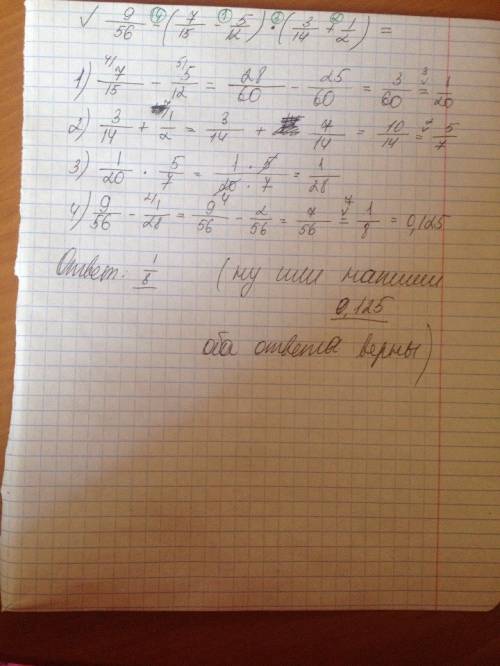 √ 9/56 - (7/15 - 5/12) · (3/14 + 1/2) =
1) 7/15 - 5/12 = 28/60 - 25/60 = 3/60 = 1/20
2) 3/14 + 1/2 = 3/14 + 7/14 = 10/14 = 5/7
3) 1/20 · 5/7 = 1 · 5/20 · 7 = 1/28
4) 9/56 - 1/28 = 9/56 - 2/56 = 7/56 = 1/8 = 0,125
Ответ: 1/8 (ну или напиши
0,125
оба ответа верны)